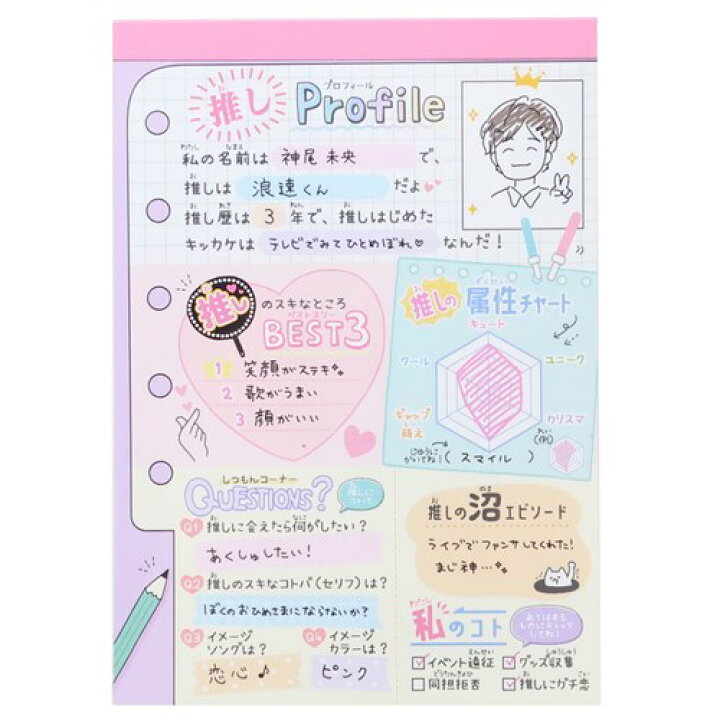 推し Profile
プロフィール
私の名前は 神尾未央 で、
推しは 浪速くん だよ
推し歴は 3 年で、推しはじめた
キッカケは テレビでみてひとめぼれ♡ なんだ！
推しのスキなところ
ベストスリー
BEST3
1 笑顔がステキ
2 歌がうまい
3 顔がいい
推しの属性チャート
キュート
クール
ユニーク
ギャップ萌え
カリスマ
(例)
じゆうにかいてね！
(スマイル)
しつもんコーナー
QUESTIONS?
推しについて
Q1 推しに会えたら何がしたい？
あくしゅしたい！
Q2 推しのスキなコトバ(セリフ)は？
ぼくのおひめさまにならないか？
Q3 イメージソングは？
恋心♪
Q4 イメージカラーは？
ピンク
推しの沼エピソード
ライブでファンサしてくれた！
まじ神…
私のコト
あてはまるものにチェックしてね！
☑イベント遠征 ☑グッズ収集
☐同担拒否 ☑推しにガチ恋